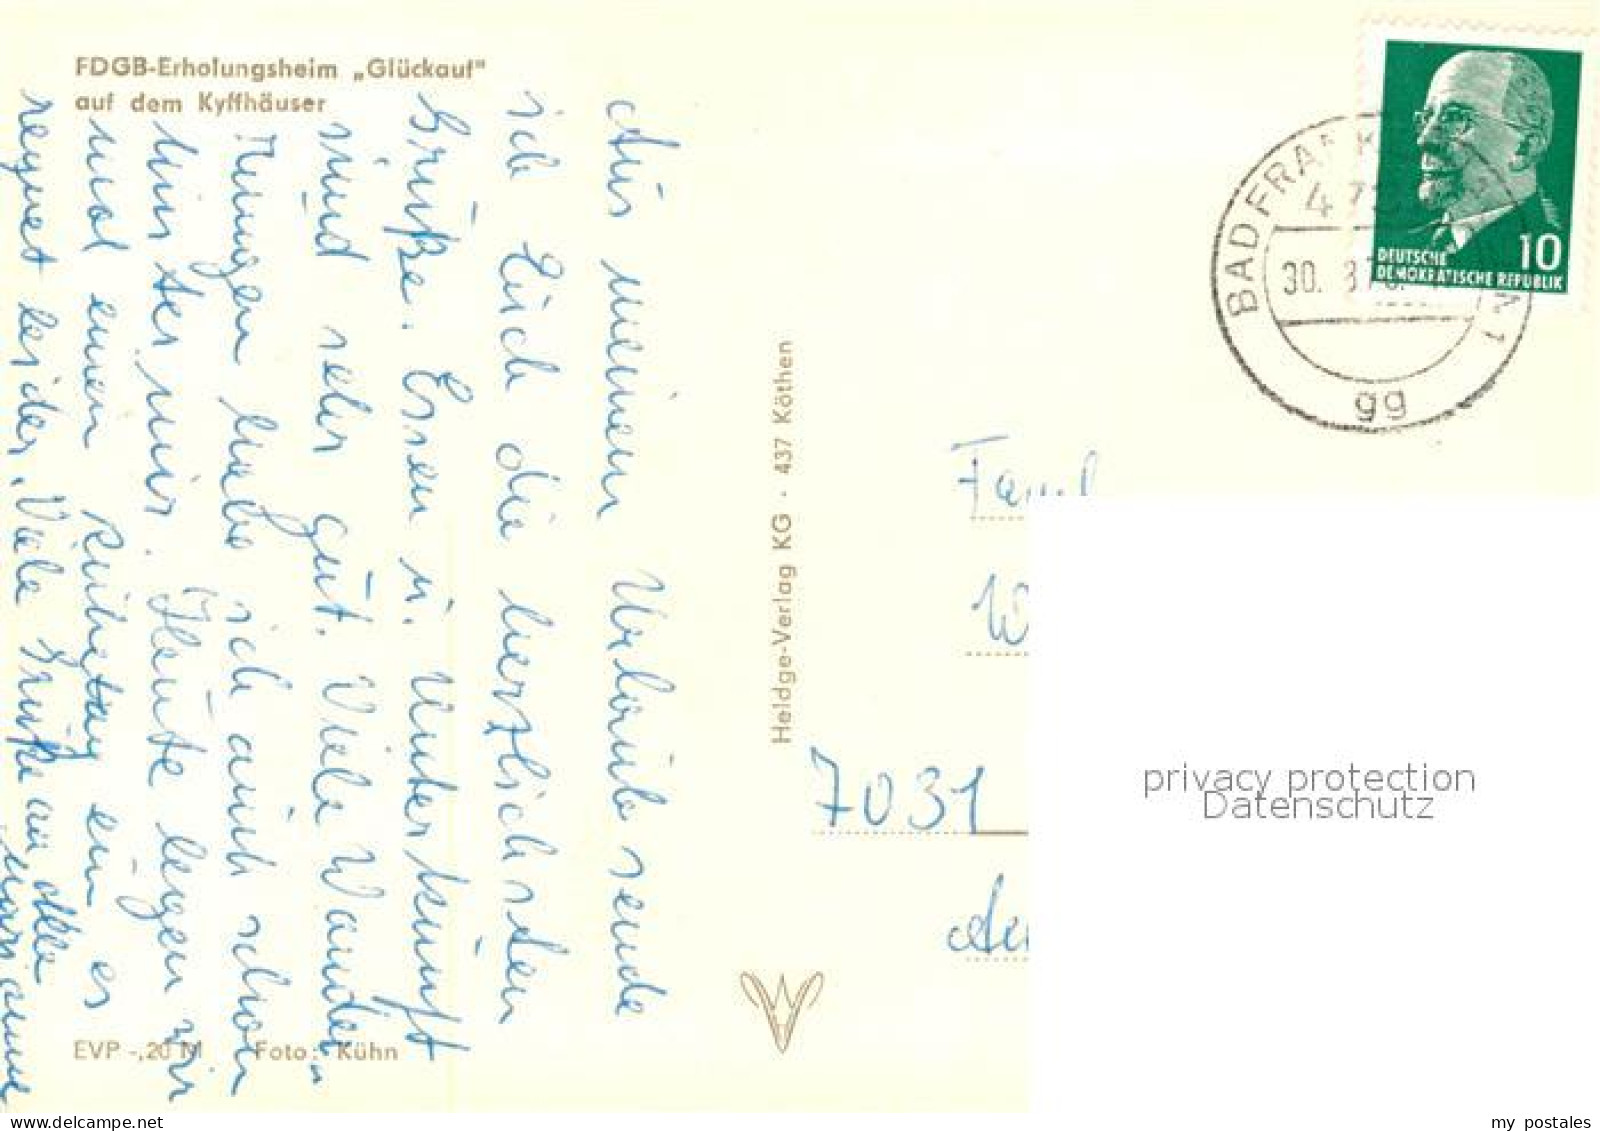 FDGB-Erholungsheim „Glückauf"
auf dem Kyffhäuser
Aus meinem Urlaub sende
ich Euch die herzlichsten
Grüße. Essen u. Unterkunft
sind sehr gut. Viele Wander"
"ungen habe ich auch schon
hinter mir. Heute legen wir
mal einen Ruhetag ein es
regnet leider. Viele Grüße an alle
Marianne
EVP -,20 M Foto: Kühn
Heldge-Verlag KG · 437 Köthen
BAD FRANK
30.
gg
DEUTSCHE
DEMOKRATISCHE REPUBLIK
10
Famil
W
7031
privacy protection
Datenschutz
www.delcampe.net
my_postales